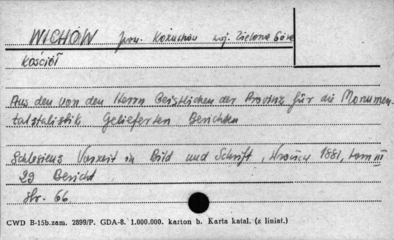 WICHÓW pow. Kożuchów woj. Zielona Góra
Kościół
Aus den von den Herrn Geistlichen der Provinz für die Monumen-
talstatistik Gelieferten Berichten
Schlesiens Vorzeit in Bild und Schrift, 1881, tom III
29 Bericht
Str. 66.
CWD B-15b.zam. 2899/P. GDA-8. 1.000.000. karton b. Karta katal. (z liniat.)